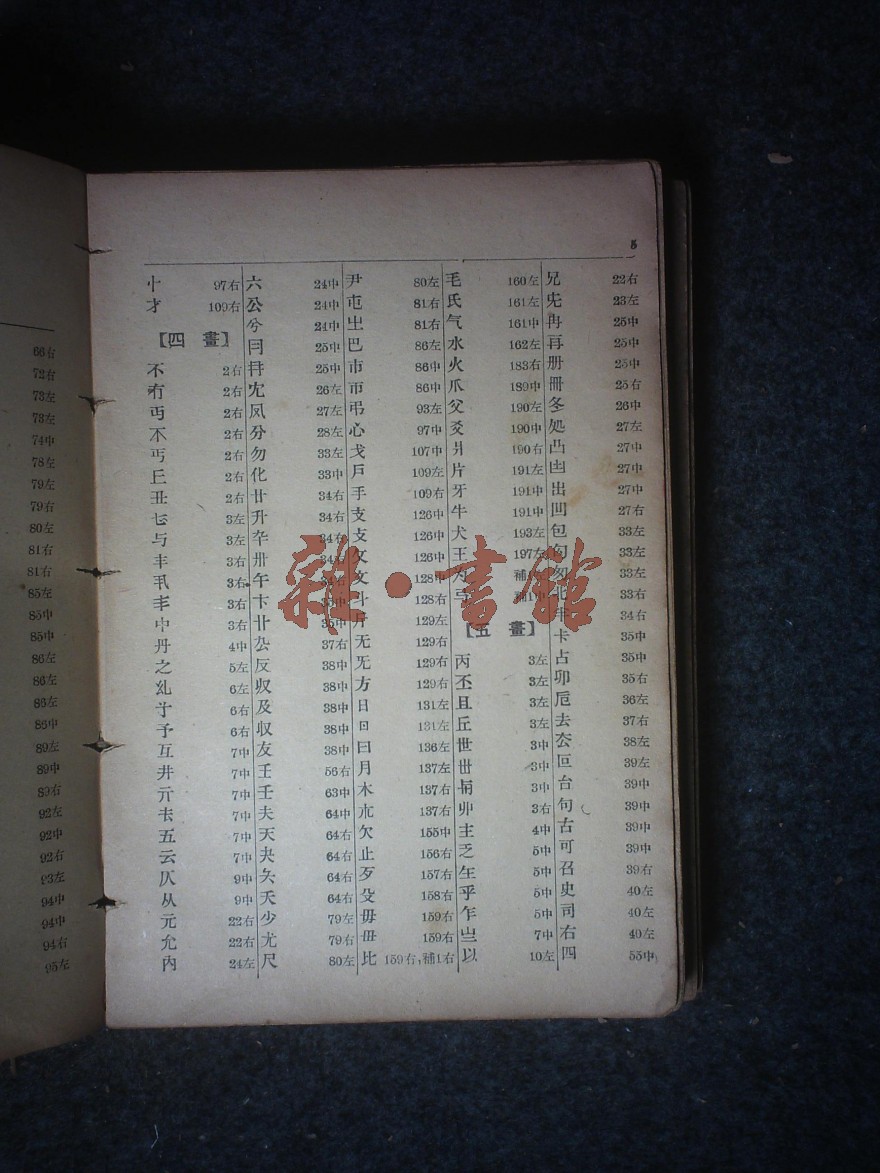 5
忄 97右
才 109右
【四 畫】
不 2右
冇 2右
丏 2右
不 2右
丐 2右
2右
丑 2右
3左
与 3左
丰 3右
丮 3右
3右
中 3右
丹 4中
之 5左
乣 6左
6右
予 6右
互 7中
井 7中
亓 7中
7中
五 7中
云 7中
仄 9中
从 9中
元 22右
允 22右
內 24左
六 24中
公 24中
兮 24中
冃 25中
25中
冘 26左
凤 27左
分 28左
勿 33左
化 33中
廿 34右
升 34右
卆 34右
卅
午
卞
卝 35中
厹 37右
反 38中
38中
及 38中
収 38中
友 38中
壬 56右
63中
夫 64中
天 64右
夬 64右
64右
夭 64右
少 79左
尤 79右
尺 80左
尹 80左
屯 81右
81右
巴 86左
市 86中
帀 86中
弔 93左
心 97中
戈 107中
戶 109左
手 109右
支 126中
攴 126中
攵 126中
文 128中
斗 128右
斤 129左
无 129右
旡 129右
方 129右
日 131左
131左
曰 136左
月 137左
木 137右
朩 137右
欠 155中
止 156右
歹 157右
殳 158右
毋 159右
毌 159右
比 159右,補1右
毛 160左
氏 161左
气 161中
水 162左
火 183右
爪 189中
父 190左
爻 190中
爿 190右
片 191左
牙 191中
牛 191中
犬 193左
王 197左
为
补1中
【五 畫】
丙 3左
丕 3左
且 3左
丘 3左
世 3中
丗 3中
3中
丱 3右
主 4中
乏 5中
5中
乎 5中
乍 5中
亗 7中
以 10左
兄 22右
23左
冉 25中
再 25中
册 25中
冊 25右
冬 26中
処 27左
凸 27中
27中
出 27中
凹 27右
包 33左
匃 33左
匆 33左
北 33右
34右
卡 35中
占 35中
卯 35右
卮 36左
去 37右
厺 38左
叵 39左
台 39中
句 39中
古 39中
可 39中
召 39右
史 40左
司 40左
右 40左
四 55中
66右
72右
73左
73左
74中
78左
79左
79右
80左
81右
81右
85左
85中
85中
86左
86左
86左
86中
89左
89中
89右
92左
92中
92右
93左
94中
94中
94右
95左
雜·書館